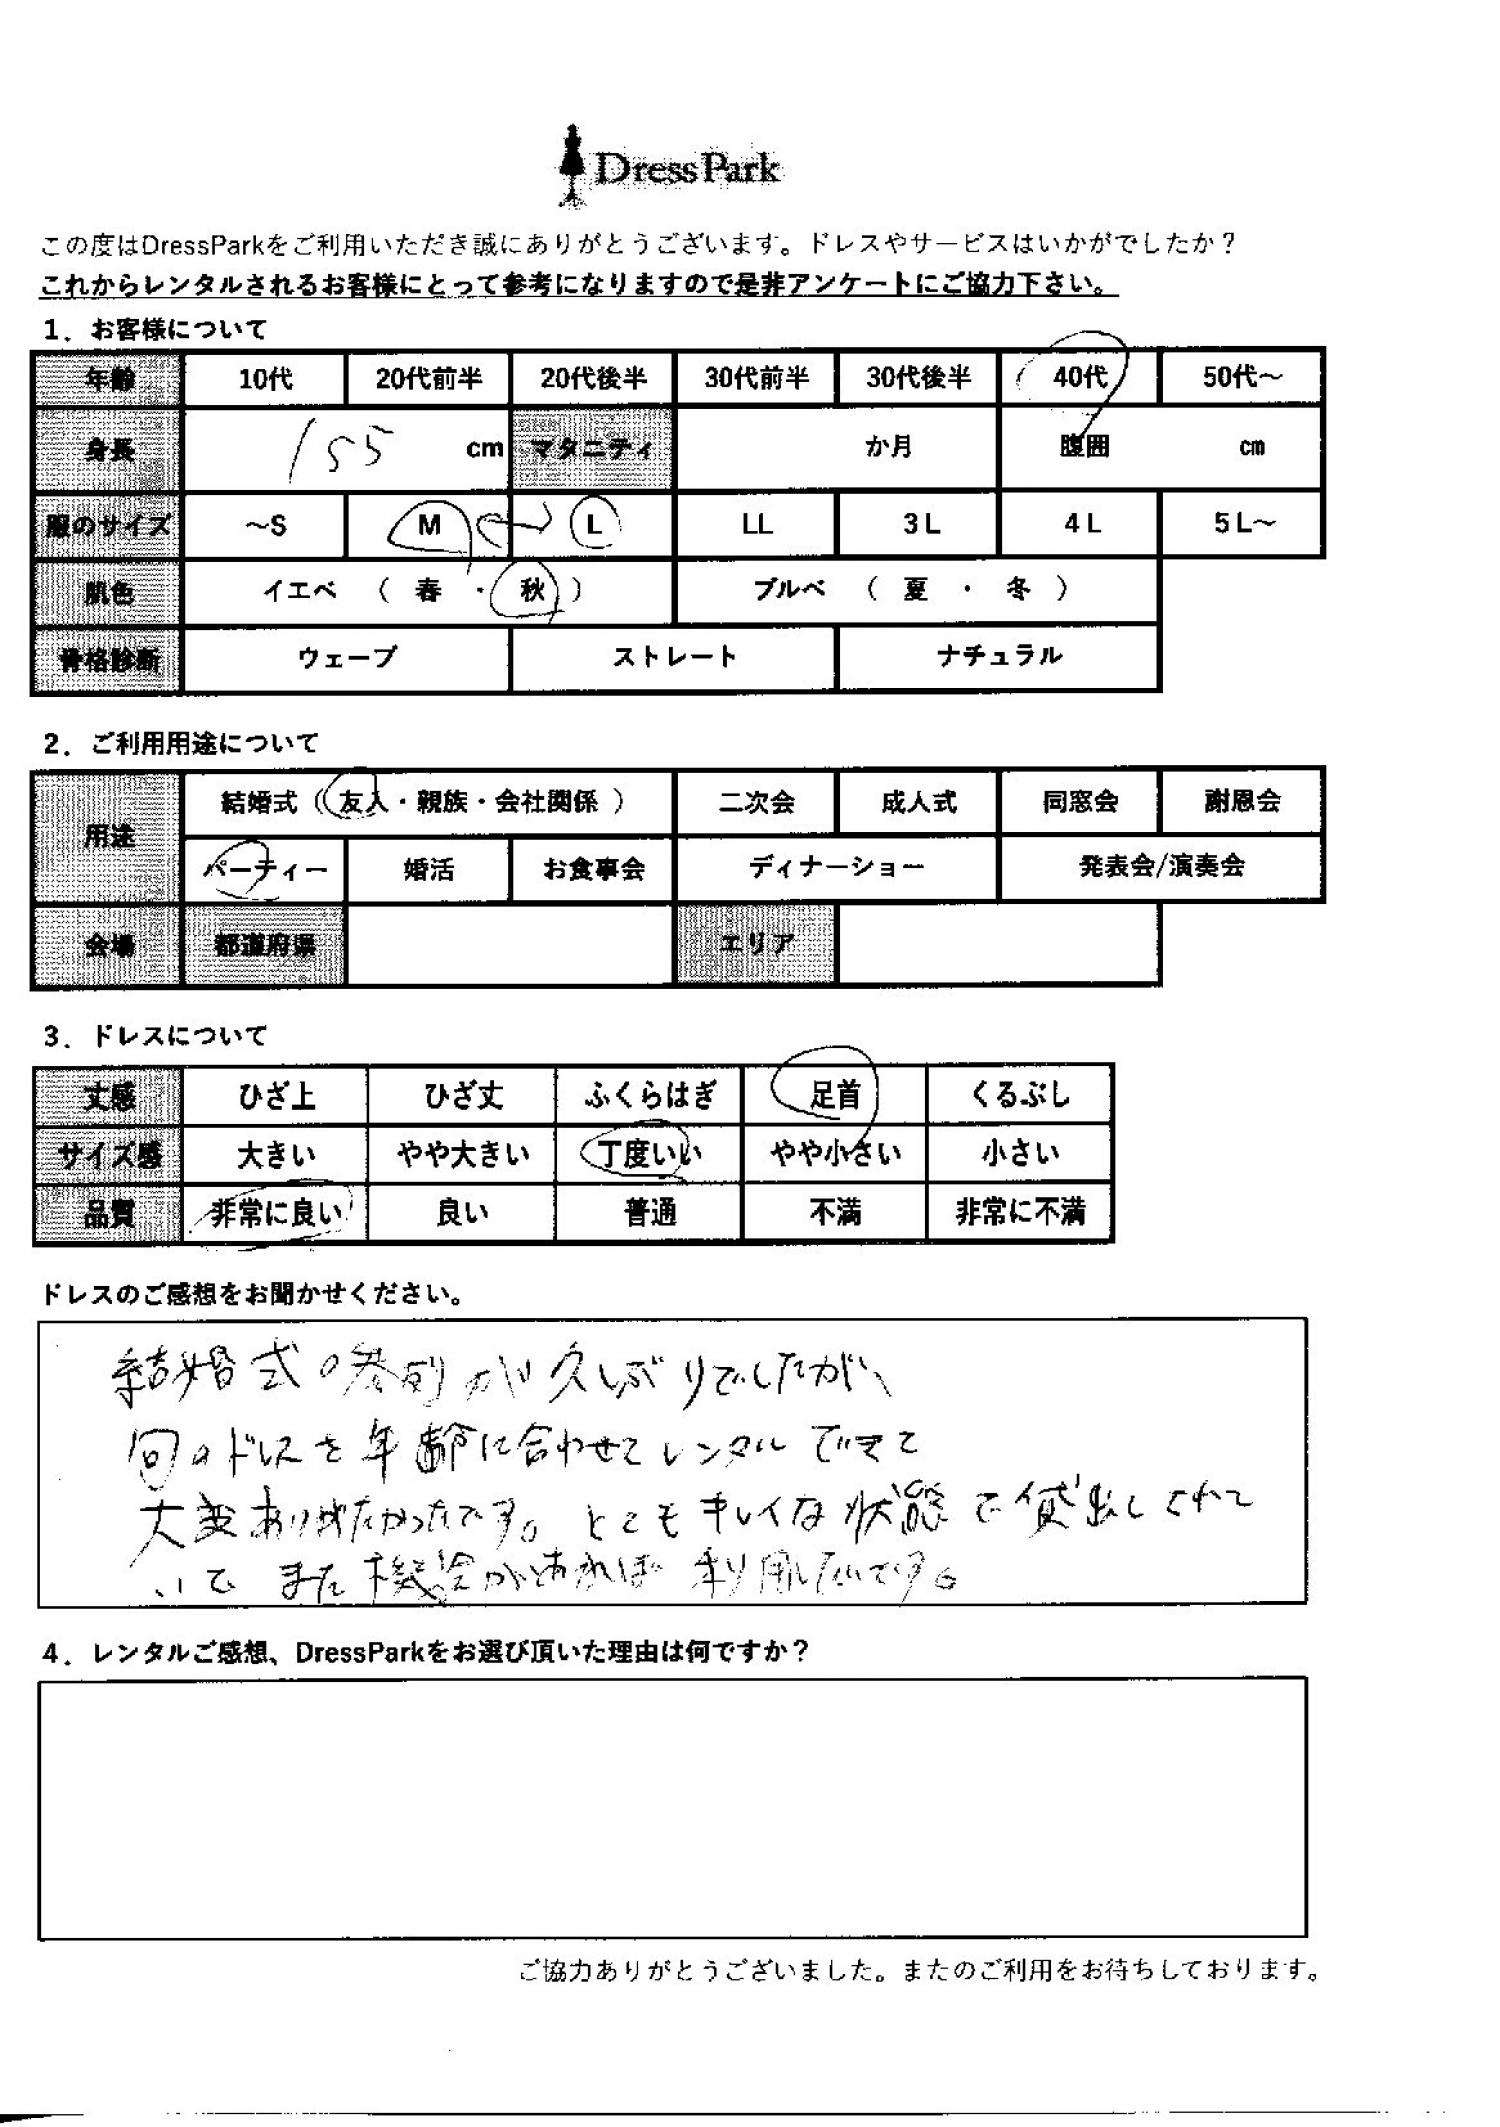 DressPark
この度はDressParkをご利用いただき誠にありがとうございます。ドレスやサービスはいかがでしたか？
これからレンタルされるお客様にとって参考になりますので是非アンケートにご協力下さい。
1．お客様について
年齢 10代 20代前半 20代後半 30代前半 30代後半 40代 50代～
身長 155 cm マタニティ か月 腹囲 cm
服のサイズ ～S M L LL 3L 4L 5L～
肌色 イエベ （ 春 ・ 秋 ） ブルベ （ 夏 ・ 冬 ）
骨格診断 ウェーブ ストレート ナチュラル
2．ご利用用途について
用途 結婚式（ 友人・親族・会社関係 ） 二次会 成人式 同窓会 謝恩会
パーティー 婚活 お食事会 ディナーショー 発表会/演奏会
会場 都道府県 エリア
3．ドレスについて
丈感 ひざ上 ひざ丈 ふくらはぎ 足首 くるぶし
サイズ感 大きい やや大きい 丁度いい やや小さい 小さい
品質 非常に良い 良い 普通 不満 非常に不満
ドレスのご感想をお聞かせください。
結婚式の参列が久しぶりでしたが、
旬のドレスを年齢に合わせてレンタルできて
大変ありがたかったです。とてもキレイな状態で貸出しくれて
いて また機会があれば 利用したいです。
4．レンタルご感想、DressParkをお選び頂いた理由は何ですか？
ご協力ありがとうございました。またのご利用をお待ちしております。